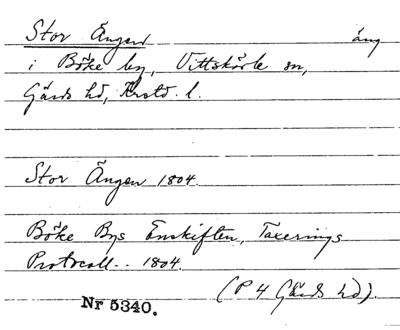 Stor Ängen äng
i Böke by, Vittskövle sn,
Gärds hd, Krstd. l.
Stor Ängen 1804.
Böke Bys Enskiften, Taxerings
Protocoll.. 1804.
(P 4 Gärds hd).
Nr 5340.